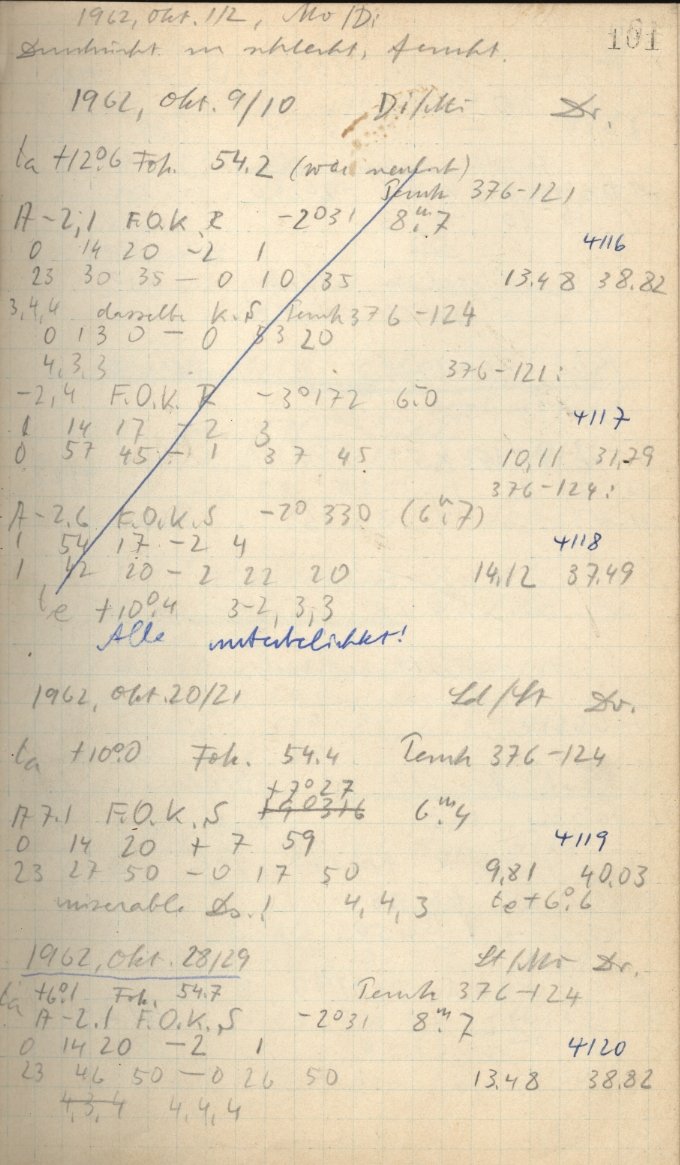 1962, Okt. 1/2, Mo/Di
101
schlecht, feucht.
1962, Okt. 9/10 Di/Mi Dr.
ta +12°.6 Fok. 54.2 (war
Temk 376-121
A-2,1 F.O.K. R -2°31 8ᵐ.7
0 14 20 -2 1 4116
23 30 35 – 0 10 35 13.48 38.82
3,4,4 dasselbe K.S, Temk 376-124
0 13 0 – 0 53 20
4,3,3 376-121:
-2,4 F.O.K. R -3°172 6.0
1 14 17 -2 3 4117
0 57 45 – 1 37 45 10,11 31,79
376-124:
A-2.6 F.O.K.S -2° 330 (6ᵐ.7)
1 54 17 -2 4 4118
1 42 20 – 2 22 20 14,12 37.49
te +10°.4 3-2, 3,3
Alle unterbelichtet!
1962, Okt. 20/21 Sd/St Dr.
ta +10°.0 Fok. 54.4 Temk 376-124
+7°27
A 7.1 F.O.K.S +9°316 6ᵐ.4
0 14 20 + 7 59 4119
23 27 50 – 0 17 50 9,81 40.03
miserable Ds.! 4,4,3 te +6°.6
1962, Okt. 28/29 St/Mo Dr.
ta +6°.1 Fok. 54.7 Temk 376-124
A-2.1 F.O.K.S -2°31 8ᵐ.7
0 14 20 -2 1 4120
23 46 50 – 0 26 50 13.48 38.82
4,3,4 4,4,4